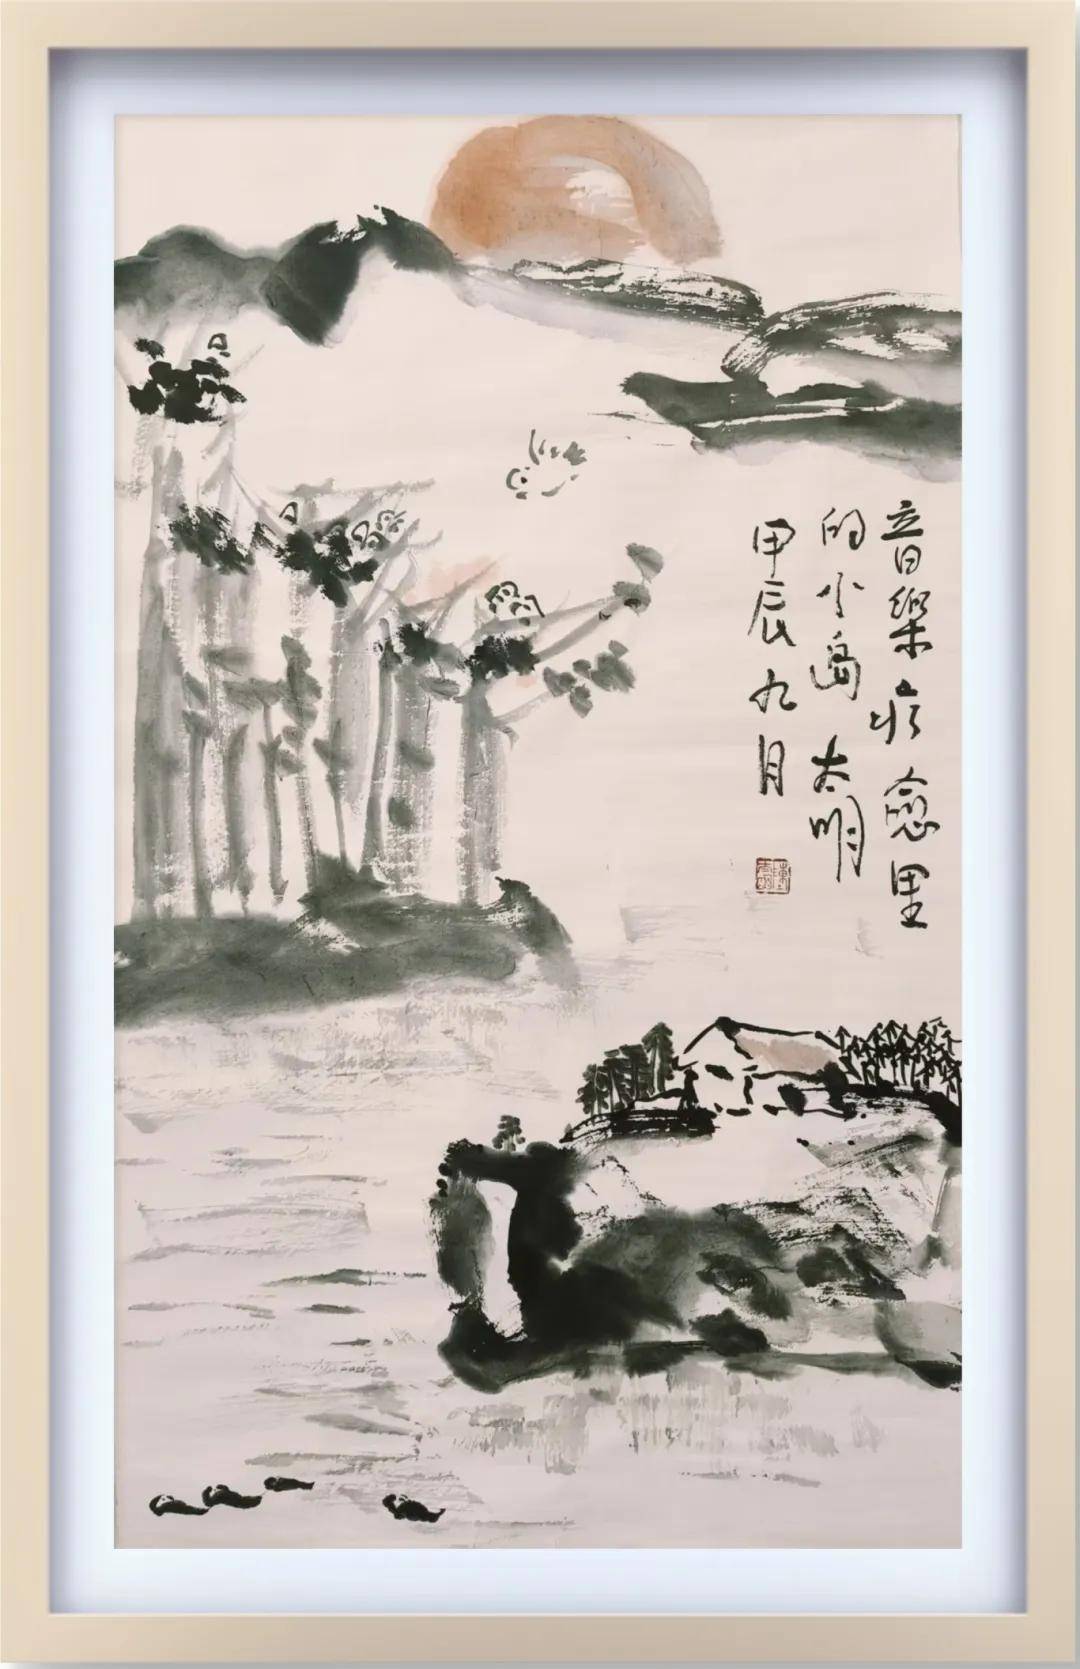 音樂疗愈里
的小岛 大明
甲辰九月